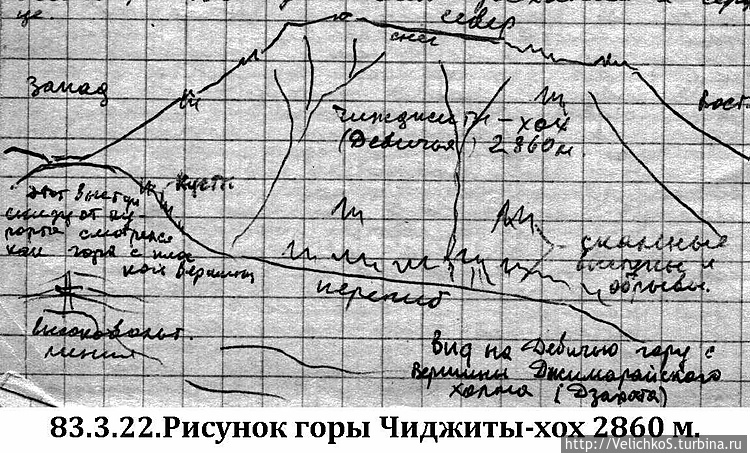 це.
север
снег
Запад
Вост.
Чиджити-хох
(Девичья) 2860м.
Кусты
Этот выступ
снизу от ку-
рорта смотрелся
как гора с плос
кой вершины
скальные
выступы и
обрывы.
перегиб
высоковольт.
линия
Вид на Девичью гору с
вершины Джимарайского
холма (Дзарота)
83.3.22.Рисунок горы Чиджиты-хох 2860 м.
http://VelichkoS.turbina.ru